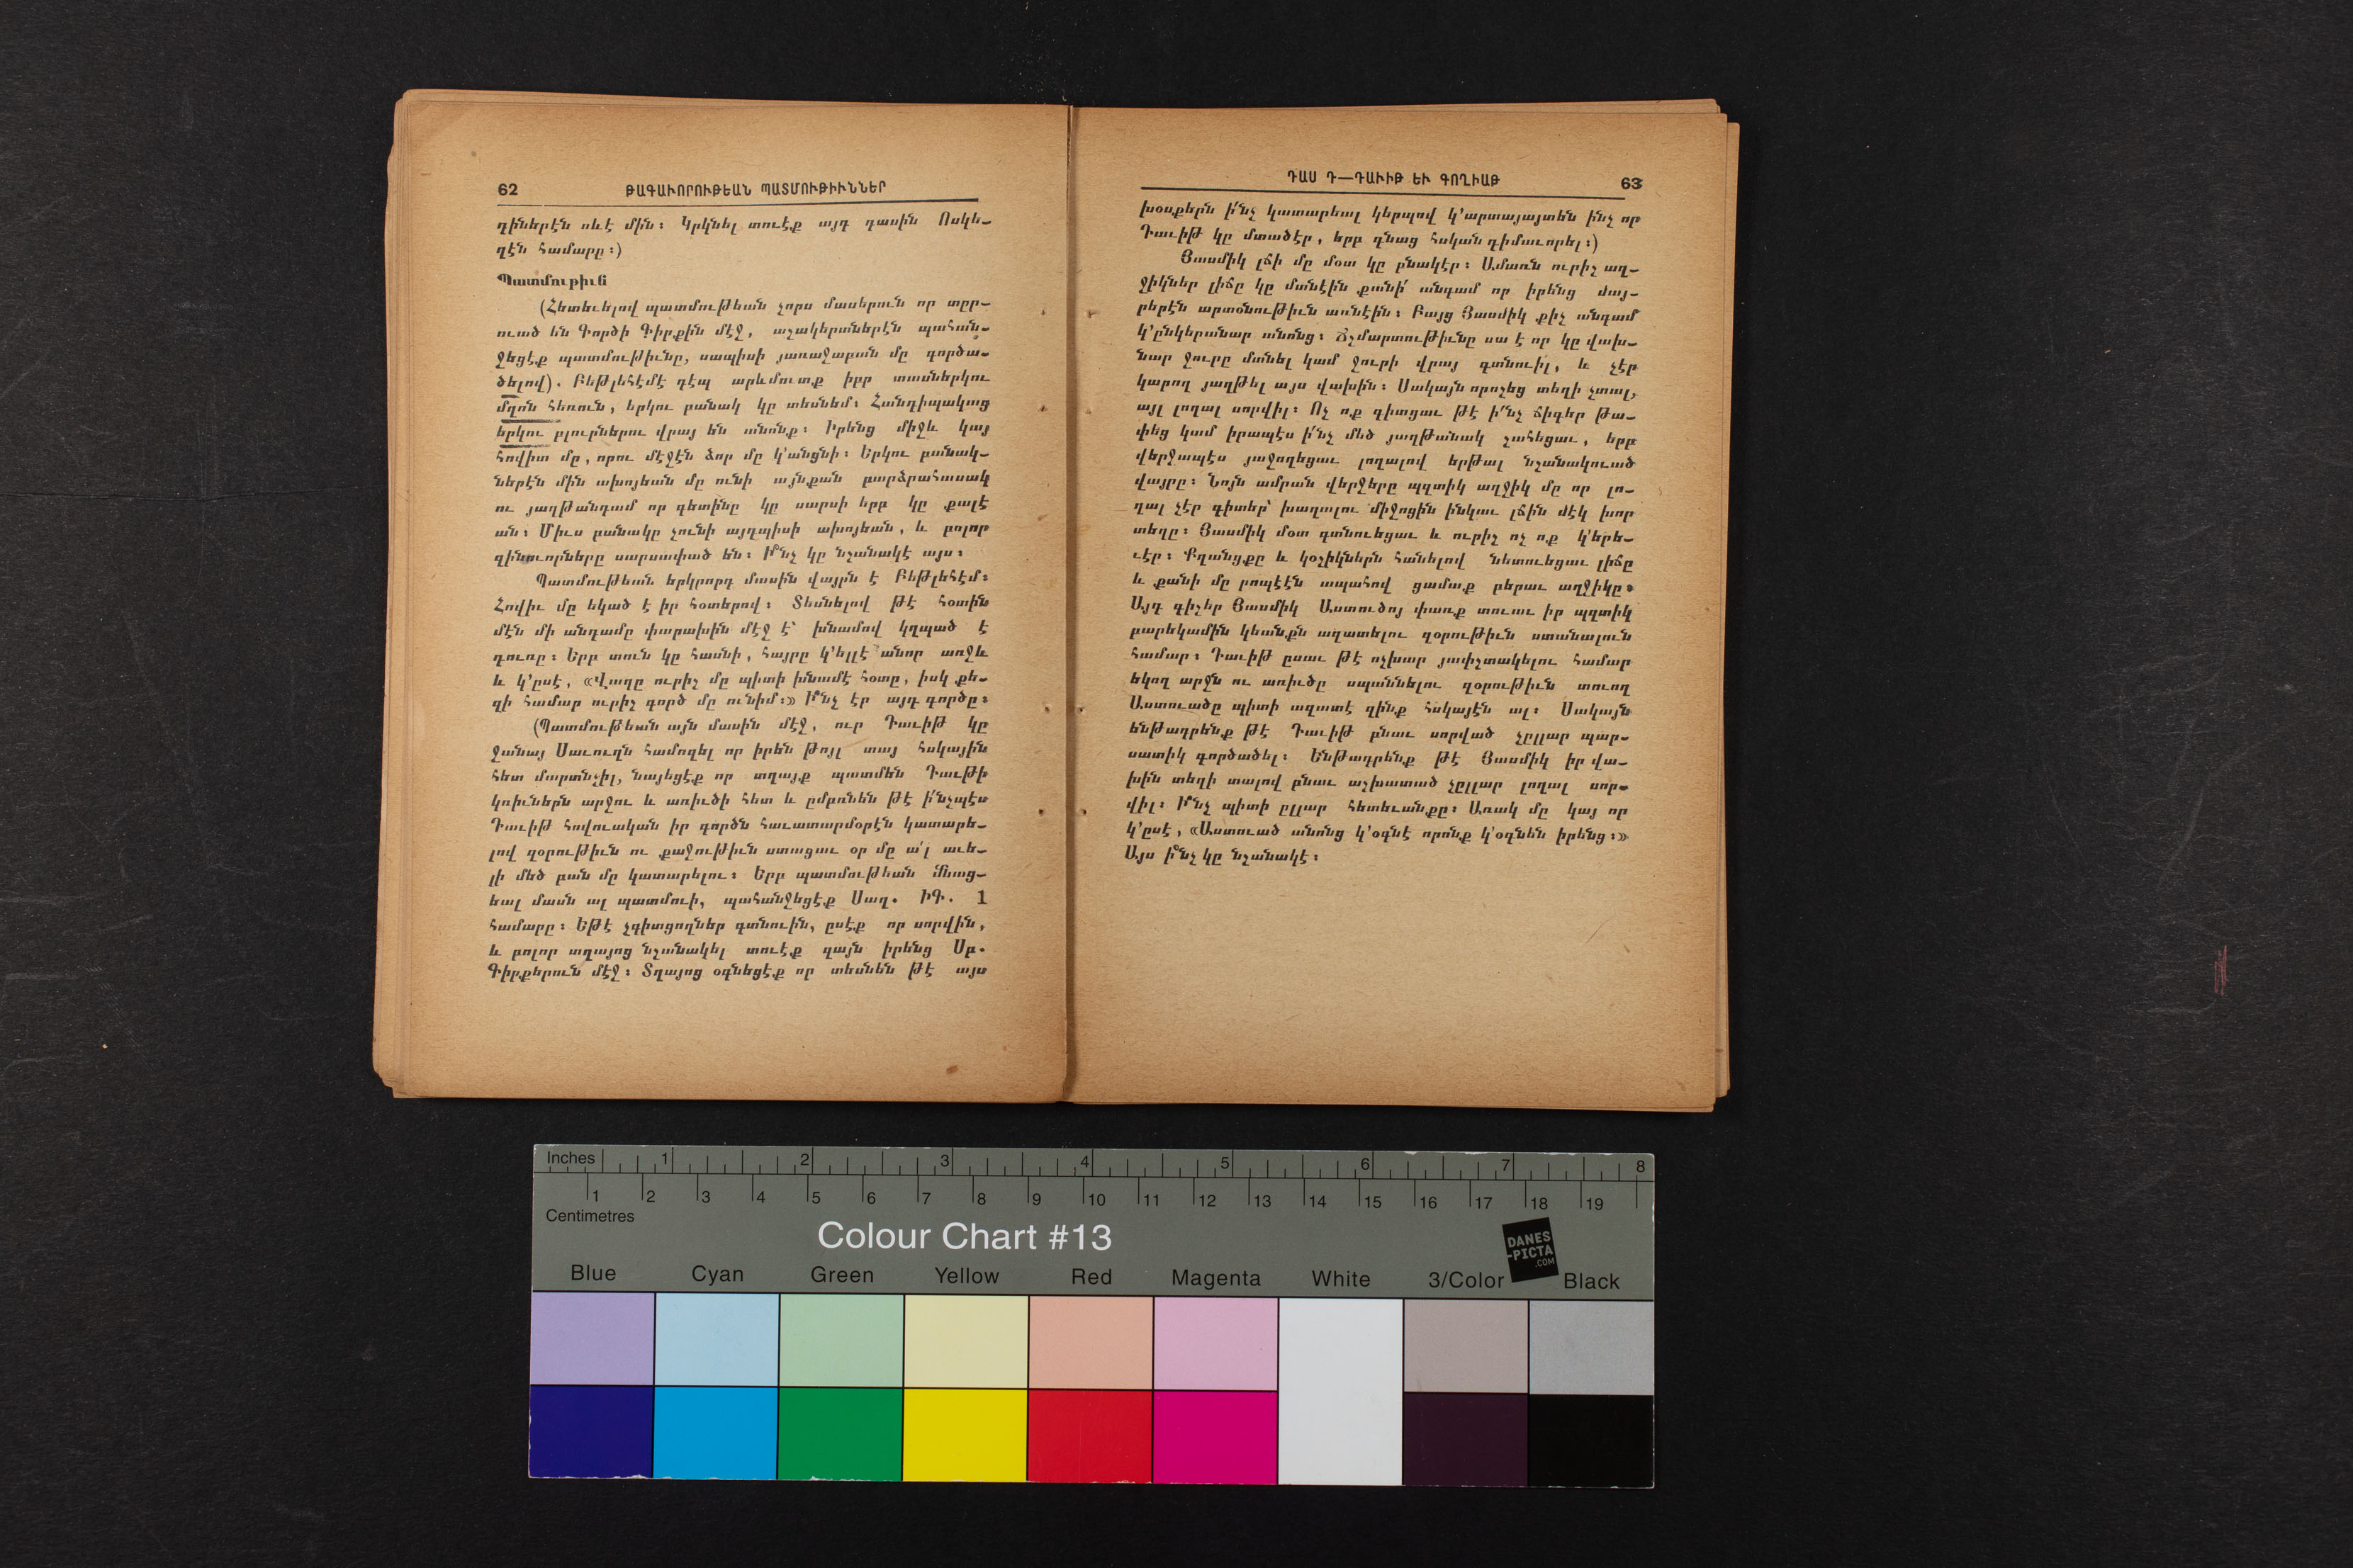 62 ԹԱԳԱՒՈՐՈՒԹԵԱՆ ՊԱՏՄՈՒԹԻՒՆՆԵՐ
դիներէն ոևէ մին։ Կրկնել տուէք այդ դասին Ոսկե-
ղէն համարը։)
Պատմութիւն
(Հետեւելով պատմութեան չորս մասերուն որ տըր-
ուած են Գործի Գիրքին մէջ, աշակերտներէն պահան-
ջեցէք պատմութիւնը, սապիսի յառաջաբան մը գործա-
ծելով). Բեթլեհէմէ դէպ արևմուտք իբր տասներկու
մղոն հեռուն, երկու բանակ կը տեսնեմ։ Հանդիպակաց
երկու բլուրներու վրայ են անոնք։ Իրենց միջև կայ
հովիտ մը, որու մէջէն ձոր մը կ՚անցնի։ Երկու բանակ-
ներէն մին ախոյեան մը ունի այնքան բարձրահասակ
ու յաղթանդամ որ գետինը կը սարսի երբ կը քալէ
ան։ Միւս բանակը չունի այդպիսի ախոյեան, և բոլոր
զինուորները սարսափած են։ Ի՞նչ կը նշանակէ այս։
Պատմութեան երկրորդ մասին վայրն է Բեթլեհէմ։
Հովիւ մը եկած է իր հօտերով։ Տեսնելով թէ հօտին
մէն մի անդամը փարախին մէջ է՝ խնամով կղպած է
դուռը։ Երբ տուն կը հասնի, հայրը կ՚ելլէ անոր առջև
և կ՚ըսէ, «Վաղը ուրիչ մը պիտի խնամէ հօտը, իսկ քե-
զի համար ուրիչ գործ մը ունիմ։» Ի՞նչ էր այդ գործը։
(Պատմութեան այն մասին մէջ, ուր Դաւիթ կը
ջանայ Սաւուղն համոզել որ իրեն թոյլ տայ հսկային
հետ մարտնչիլ, նայեցէք որ տղայք պատմեն Դաւթի
կռիւներն արջու և առիւծի հետ և ըմբռնեն թէ ի՛նչպէս
Դաւիթ հովուական իր գործն հաւատարմօրէն կատարե-
լով զօրութիւն ու քաջութիւն ստացաւ օր մը ա՛լ աւե-
լի մեծ բան մը կատարելու։ Երբ պատմութեան մնաց-
եալ մասն ալ պատմուի, պահանջեցէք Սաղ. ԻԳ. 1
համարը։ Եթէ չգիտցողներ գտնուին, ըսէք որ սորվին,
և բոլոր տղայոց նշանակել տուէք զայն իրենց Սբ.
Գիրքերուն մէջ։ Տղայոց օգնեցէք որ տեսնեն թէ այս
ԴԱՍ Դ—ԴԱՒԻԹ ԵՒ ԳՈՂԻԱԹ 63
խօսքերն ի՛նչ կատարեալ կերպով կ՚արտայայտեն ինչ որ
Դաւիթ կը մտածէր, երբ գնաց հսկան դիմաւորել։)
Յասմիկ լճի մը մօտ կը բնակէր։ Ամառն ուրիչ աղ-
ջիկներ լիճը կը մտնէին քանի՛ անգամ որ իրենց մայ-
րերէն արտօնութիւն առնէին։ Բայց Յասմիկ քիչ անգամ
կ՚ընկերանար անոնց։ Ճշմարտութիւնը սա է որ կը վախ-
նար ջուրը մտնել կամ ջուրի վրայ գտնուիլ, և չէր
կարող յաղթել այս վախին։ Սակայն որոշեց տեղի չտալ,
այլ լողալ սորվիլ։ Ոչ ոք գիտցաւ թէ ի՛նչ ճիգեր թա-
փեց կամ իրապէս ի՛նչ մեծ յաղթանակ շահեցաւ, երբ
վերջապէս յաջողեցաւ լողալով երթալ նշանակուած
վայրը։ Նոյն ամրան վերջերը պզտիկ աղջիկ մը որ լո-
ղալ չէր գիտեր՝ խաղալու միջոցին ինկաւ լճին մէկ խոր
տեղը։ Յասմիկ մօտ գտնուեցաւ և ուրիչ ոչ ոք կ՚երե-
ւէր։ Քղանցքը և կօշիկներն հանելով նետուեցաւ լիճը
և քանի մը րոպէէն ապահով ցամաք բերաւ աղջիկը։
Այդ գիշեր Յասմիկ Աստուծոյ փառք տուաւ իր պզտիկ
բարեկամին կեանքն ազատելու զօրութիւն ստանալուն
համար։ Դաւիթ ըսաւ թէ ոչխար յափշտակելու համար
եկող արջն ու առիւծը սպաննելու զօրութիւն տուող
Աստուածը պիտի ազատէ զինք հսկայէն ալ։ Սակայն
ենթադրենք թէ Դաւիթ բնաւ սորված չըլլար պար-
սատիկ գործածել։ Ենթադրենք թէ Յասմիկ իր վա-
խին տեղի տալով բնաւ աշխատած չըլլար լողալ սոր-
վիլ։ Ի՞նչ պիտի ըլլար հետեւանքը։ Առակ մը կայ որ
կ՚ըսէ, «Աստուած անոնց կ՚օգնէ որոնք կ՚օգնեն իրենց։»
Այս ի՞նչ կը նշանակէ։
Inches 1 2 3 4 5 6 7 8
1 2 3 4 5 6 7 8 9 10 11 12 13 14 15 16 17 18 19
Centimetres
Colour Chart #13
DANES
-PICTA
.COM
Blue Cyan Green Yellow Red Magenta White 3/Color Black